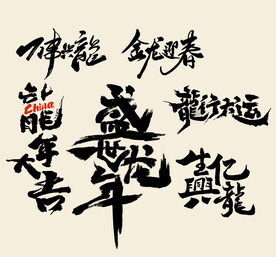 万事兴龍
金龙迎春
龍年大吉
China
盛世龙年
龍行大运
生亿興龍